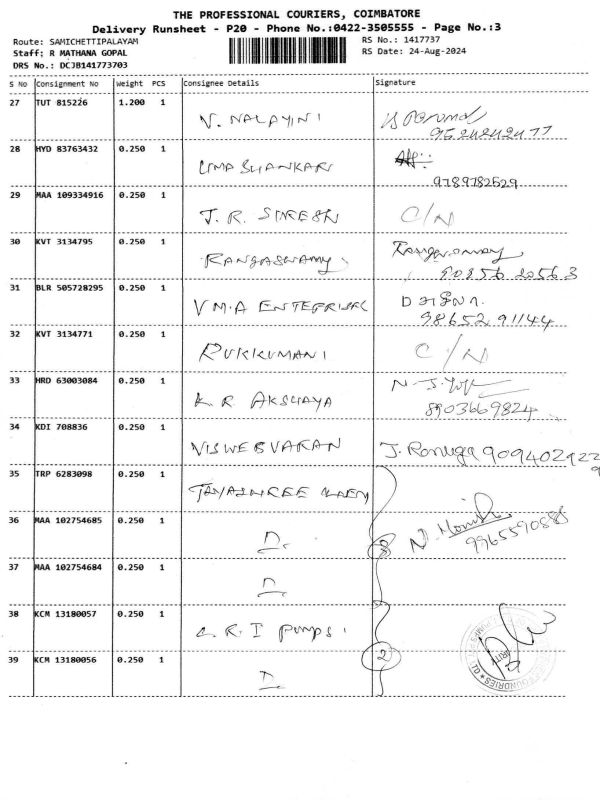 THE PROFESSIONAL COURIERS, COIMBATORE
Delivery Runsheet - P20 - Phone No.:0422-3505555 - Page No.:3
Route: SAMICHETTIPALAYAM
RS No.: 1417737
Staff: R MATHANA GOPAL
RS Date: 24-Aug-2024
DRS No.: DCJB141773703
S No Consignment No Weight PCS Consignee Details Signature
27 TUT 815226 1.200 1
V. NALAYINI
28 HYD 83763432 0.250 1
UMA SHANKAR
9789782529
29 MAA 109334916 0.250 1
J. R. SURESH C/N
30 KVT 3134795 0.250 1
RANGASWAMY
90856 20563
31 BLR 505728295 0.250 1
V M.A
98652 91144
32 KVT 3134771 0.250 1
RUKKUMANI C/N
33 HRD 63003084 0.250 1
K R AKSHAYA
8903669824
34 KDI 708836 0.250 1
J. Renuga 909402922
35 TRP 6283098 0.250 1
36 MAA 102754685 0.250 1
D. 3
9965590888
37 MAA 102754684 0.250 1
D
38 KCM 13180057 0.250 1
C. R. I pumps.
39 KCM 13180056 0.250 1
D. 2